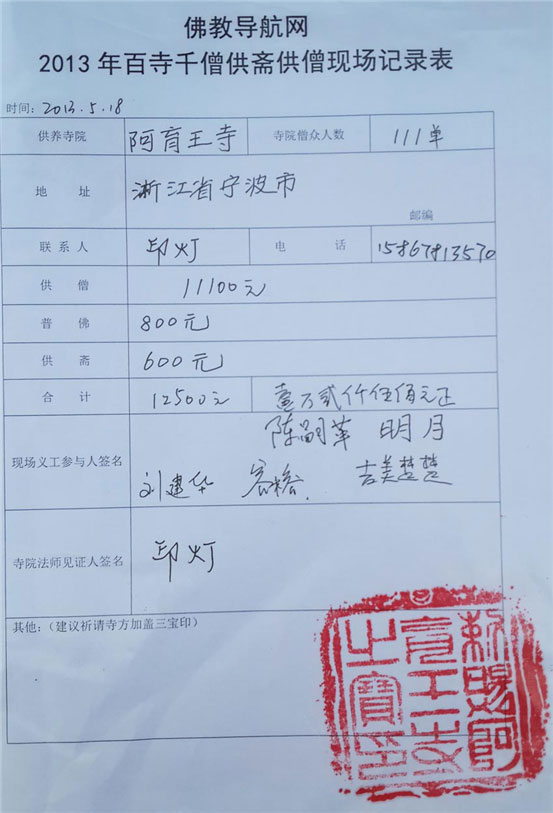 佛教导航网
2013年百寺千僧供斋供僧现场记录表
时间: 2013.5.18
供养寺院 阿育王寺 寺院僧众人数 111单
地 址 浙江省宁波市
邮编
联系人 印灯 电 话
供 僧 11100元
普 佛 800元
供 斋 600元
合 计 12500元 壹万贰仟伍佰元正
明月
现场义工参与人签名 刘建华 吉美楚楚
寺院法师见证人签名 印灯
其他:(建议祈请寺方加盖三宝印)
敕赐阿
育王寺
之寶印